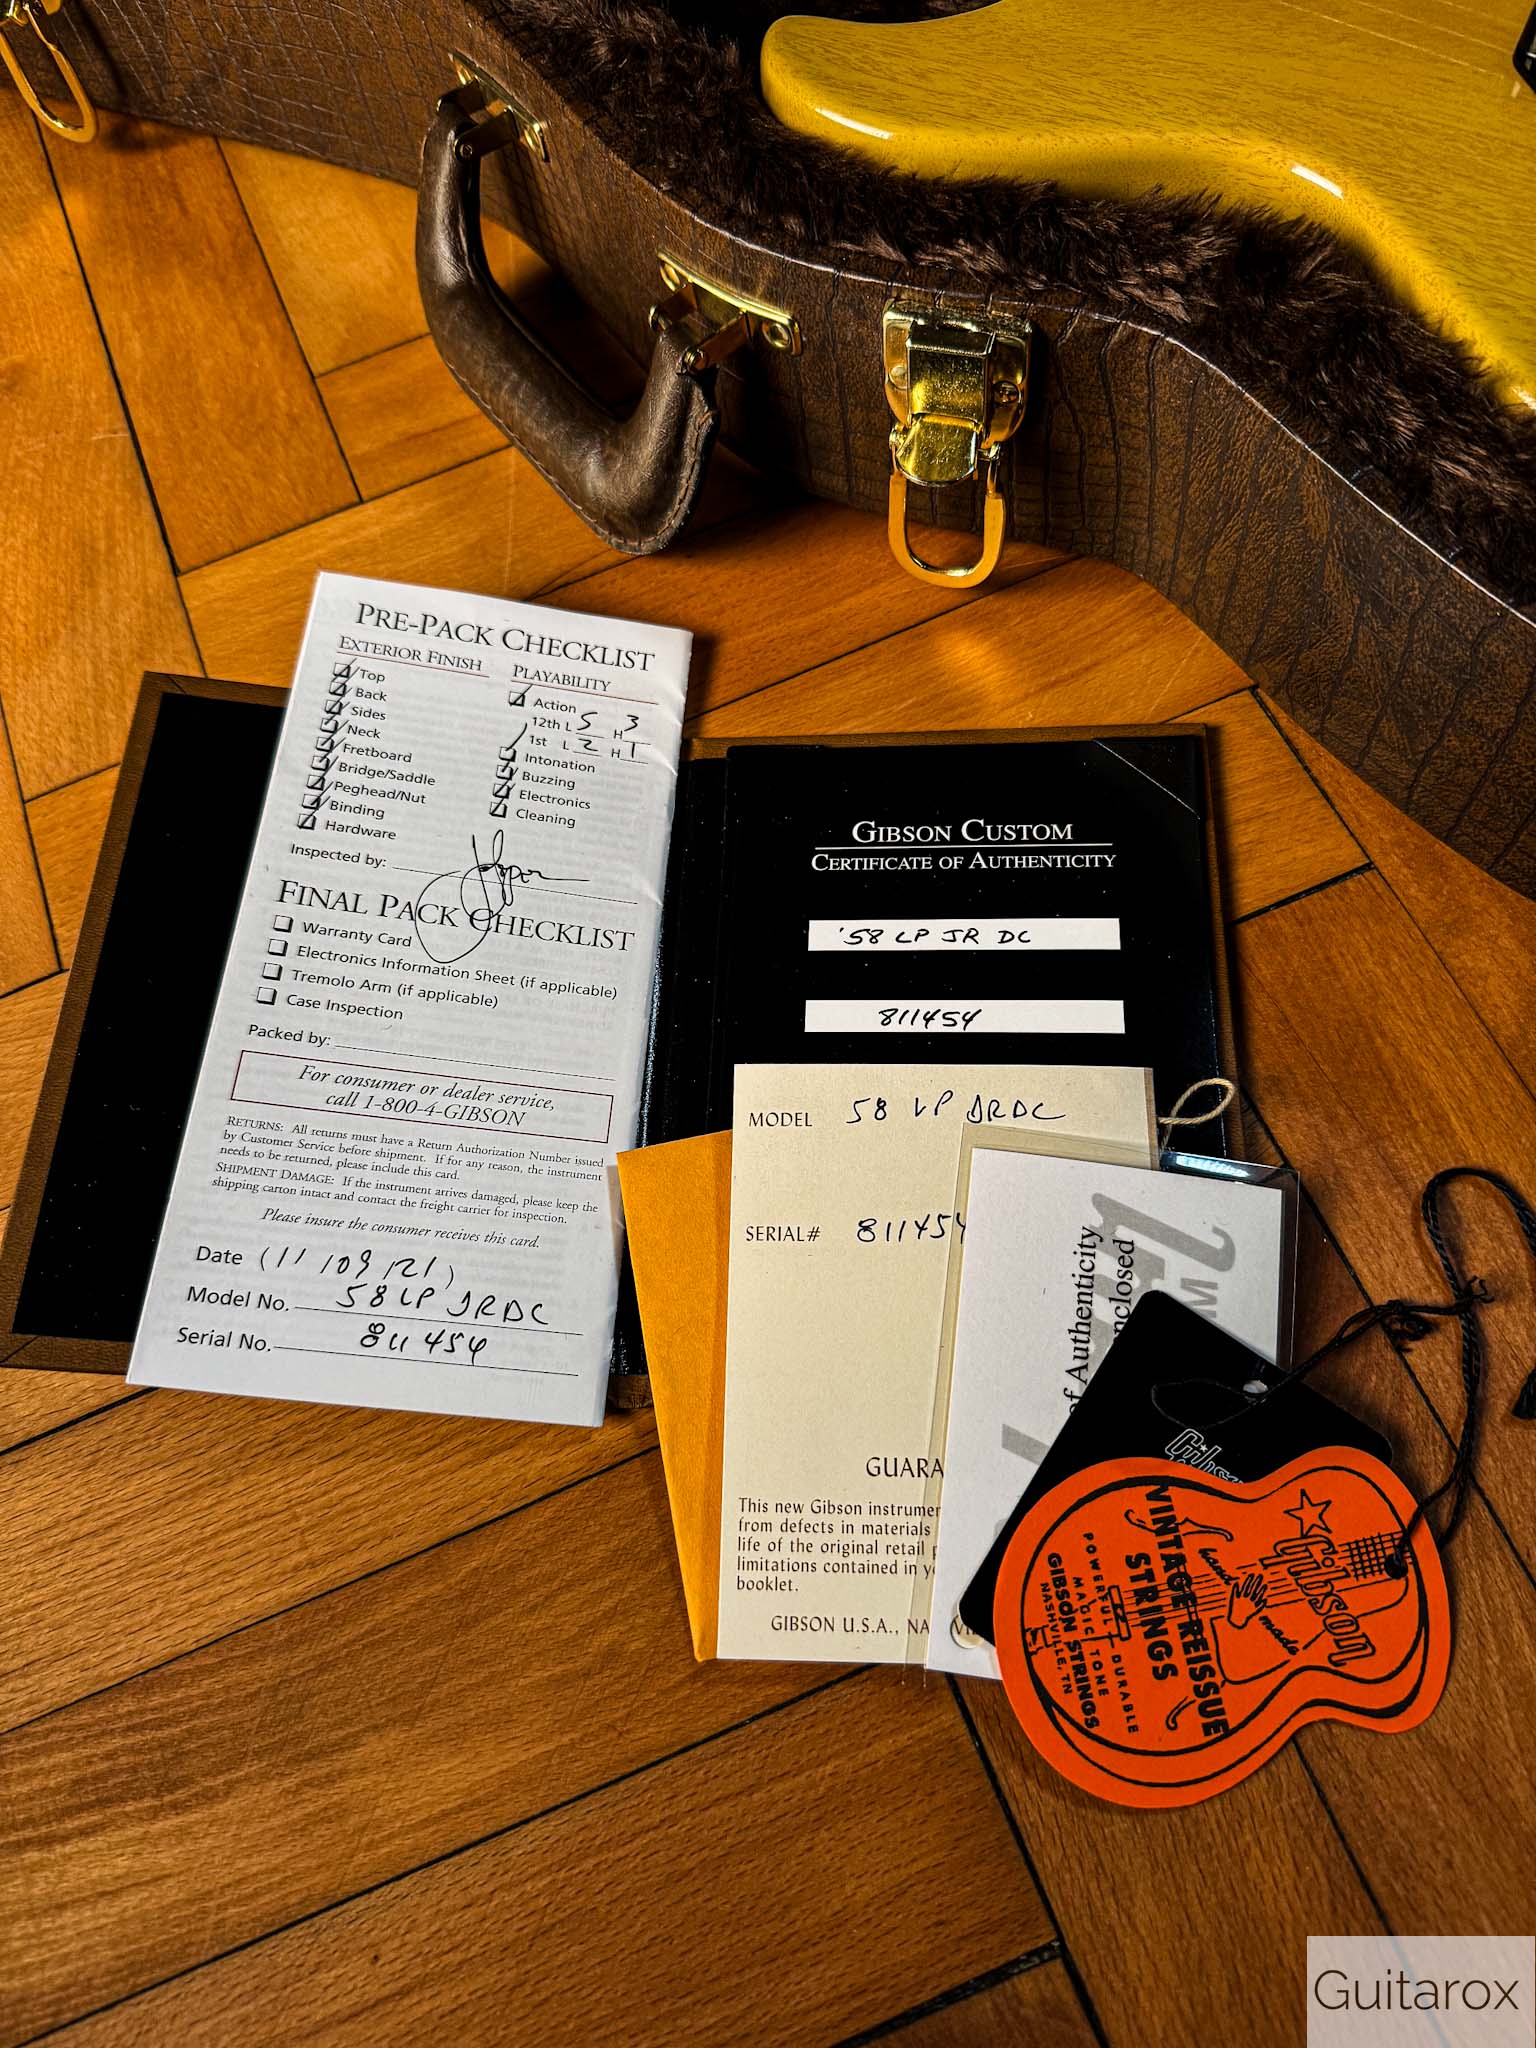 PRE-PACK CHECKLIST
EXTERIOR FINISH
Top
Back
Sides
Neck
Fretboard
Bridge/Saddle
Peghead/Nut
Binding
Hardware
PLAYABILITY
Action
12th L 5 H 3
1st L 2 H 1
Intonation
Buzzing
Electronics
Cleaning
Inspected by:
FINAL PACK CHECKLIST
Warranty Card
Electronics Information Sheet (if applicable)
Tremolo Arm (if applicable)
Case Inspection
Packed by:
For consumer or dealer service,
call 1-800-4-GIBSON
RETURNS: All returns must have a Return Authorization Number issued
by Customer Service before shipment. If for any reason, the instrument
needs to be returned, please include this card.
SHIPMENT DAMAGE: If the instrument arrives damaged, please keep the
shipping carton intact and contact the freight carrier for inspection.
Please insure the consumer receives this card.
Date (11/09/21)
Model No. 58 LP JRDC
Serial No. 811454
GIBSON CUSTOM
CERTIFICATE OF AUTHENTICITY
'58 LP JR DC
811454
MODEL 58 LP JRDC
SERIAL# 811454
GUARA
This new Gibson instrumen
from defects in materials
life of the original retail p
limitations contained in yo
booklet.
GIBSON U.S.A., NA
of Authenticity
nclosed
Gibson
Gibson
hand made
VINTAGE REISSUE
STRINGS
POWERFUL DURABLE
MAGIC TONE
GIBSON STRINGS
NASHVILLE, TN
Guitarox